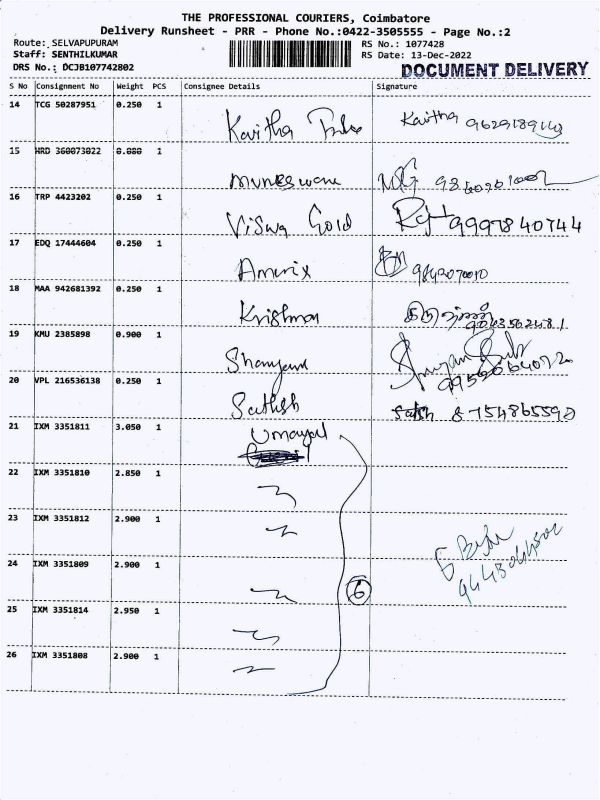 THE PROFESSIONAL COURIERS, Coimbatore
Delivery Runsheet - PRR - Phone No.:0422-3505555 - Page No.:2
Route: SELVAPUPURAM RS No.: 1077428
Staff: SENTHILKUMAR RS Date: 13-Dec-2022
DRS No.: DCJB107742802 DOCUMENT DELIVERY
S No Consignment No Weight PCS Consignee Details Signature
14 TCG 50287951 0.250 1 Kavitha Kavitha
15 HRD 360073022 0.080 1
16 TRP 4423202 0.250 1 Viswa Gold 9997840744
17 EDQ 17444604 0.250 1
18 MAA 942681392 0.250 1 Krishnan
19 KMU 2385898 0.900 1
20 VPL 216536138 0.250 1 Sathish 8754865590
21 IXM 3351811 3.050 1
22 IXM 3351810 2.850 1
23 IXM 3351812 2.900 1
24 IXM 3351809 2.900 1 6
25 IXM 3351814 2.950 1
26 IXM 3351808 2.900 1